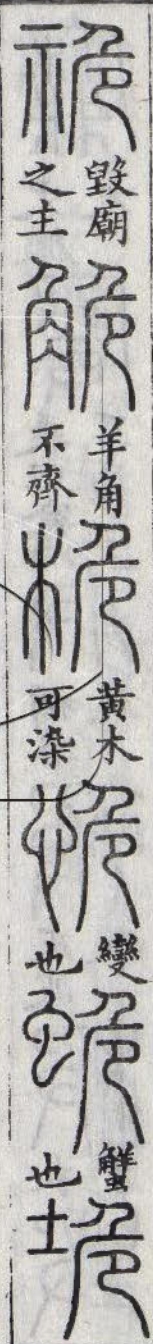 祪毀廟之主觤羊角不齊桅黃木可染恑變也蛫蟹也垝